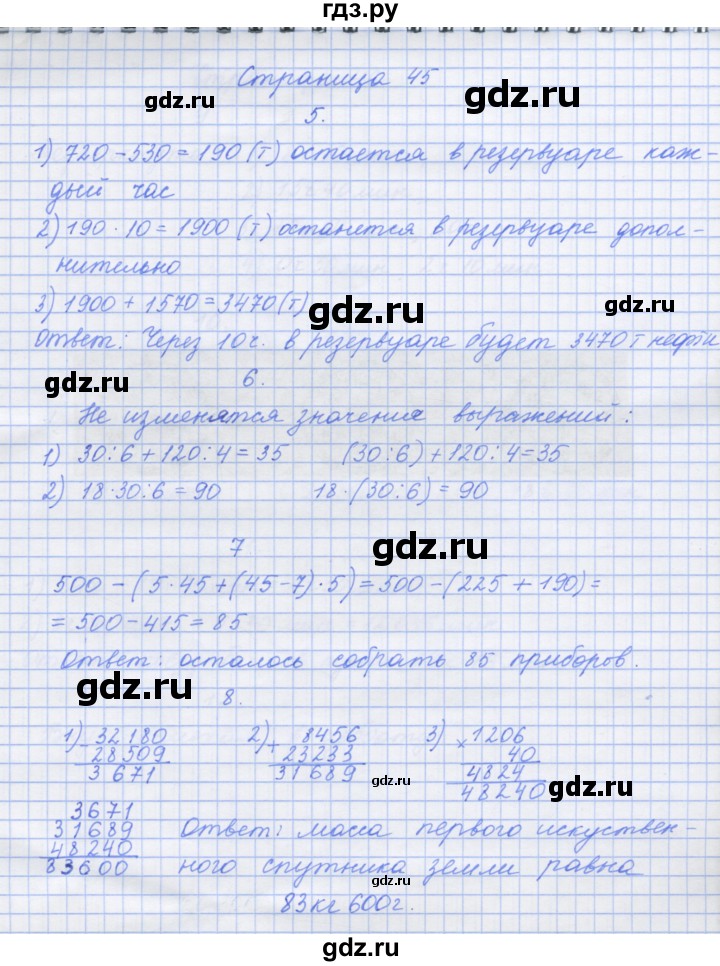 гдз.ру
Страница 45
gdz.ru gdz.ru
5.
1) 720 - 530 = 190 (т) остается в резервуаре каж-
дый час
2) 190 · 10 = 1900 (т) останется в резервуаре допол-
нительно
3) 1900 + 1570 = 3470 (т)
gdz.ru gdz.ru
Ответ: Через 10 ч. в резервуаре будет 3470 т нефти
gdz.ru
6.
Не изменятся значения выражений:
1) 30:6 + 120:4 = 35 (30:6) + 120:4 = 35
2) 18·30:6 = 90 18·(30:6) = 90
7
gdz.ru
500 - (5·45 + (45-7)·5) = 500 - (225 + 190) =
= 500 - 415 = 85
Ответ: осталось собрать 85 приборов.
gdz.ru
8.
1) 32180 2) 8456 3) 1206
- 28509 + 23233 × 40
3671 31689 4824
48240
gdz.ru gdz.ru
3671
31689 Ответ: масса первого искуствен-
48240
83600 ного спутника земли равна
gdz.ru
83 кг 600 г.
gdz.ru